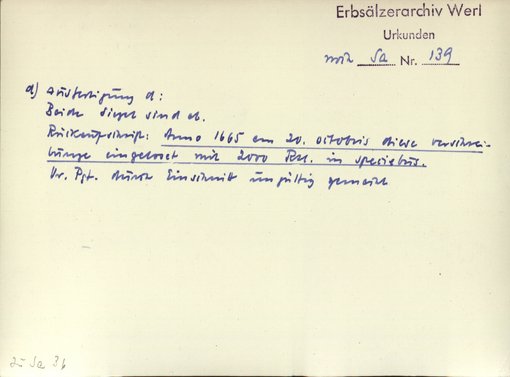 Erbsälzerarchiv Werl
Urkunden
noch Sa Nr. 139
d) Ausfertigung d:
Beide Siegel sind ab.
Rückaufschrift: Anno 1665 am 20. octobris diese verschrei-
bunge eingeloset mit 2000 Rtl. in speciebus.
Or. Pgt. durch Einschnitt ungültig gemacht
zu Sa 36